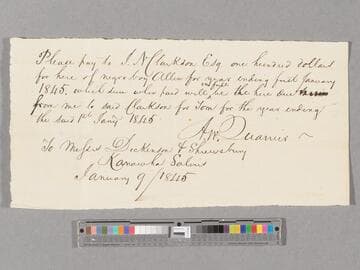 Please pay to J. N Clarkson Esq one hundred dollars
for hire of negro boy Allen for year ending first January
1845. which sum when paid will be in full the hire due
from me to said Clarkson for Tom for the year ending
the said 1st Jany 1845
A. W. Quarrier
To Messrs Dickinson & Shrewsbury
Kanawha Salines
January 9/1845